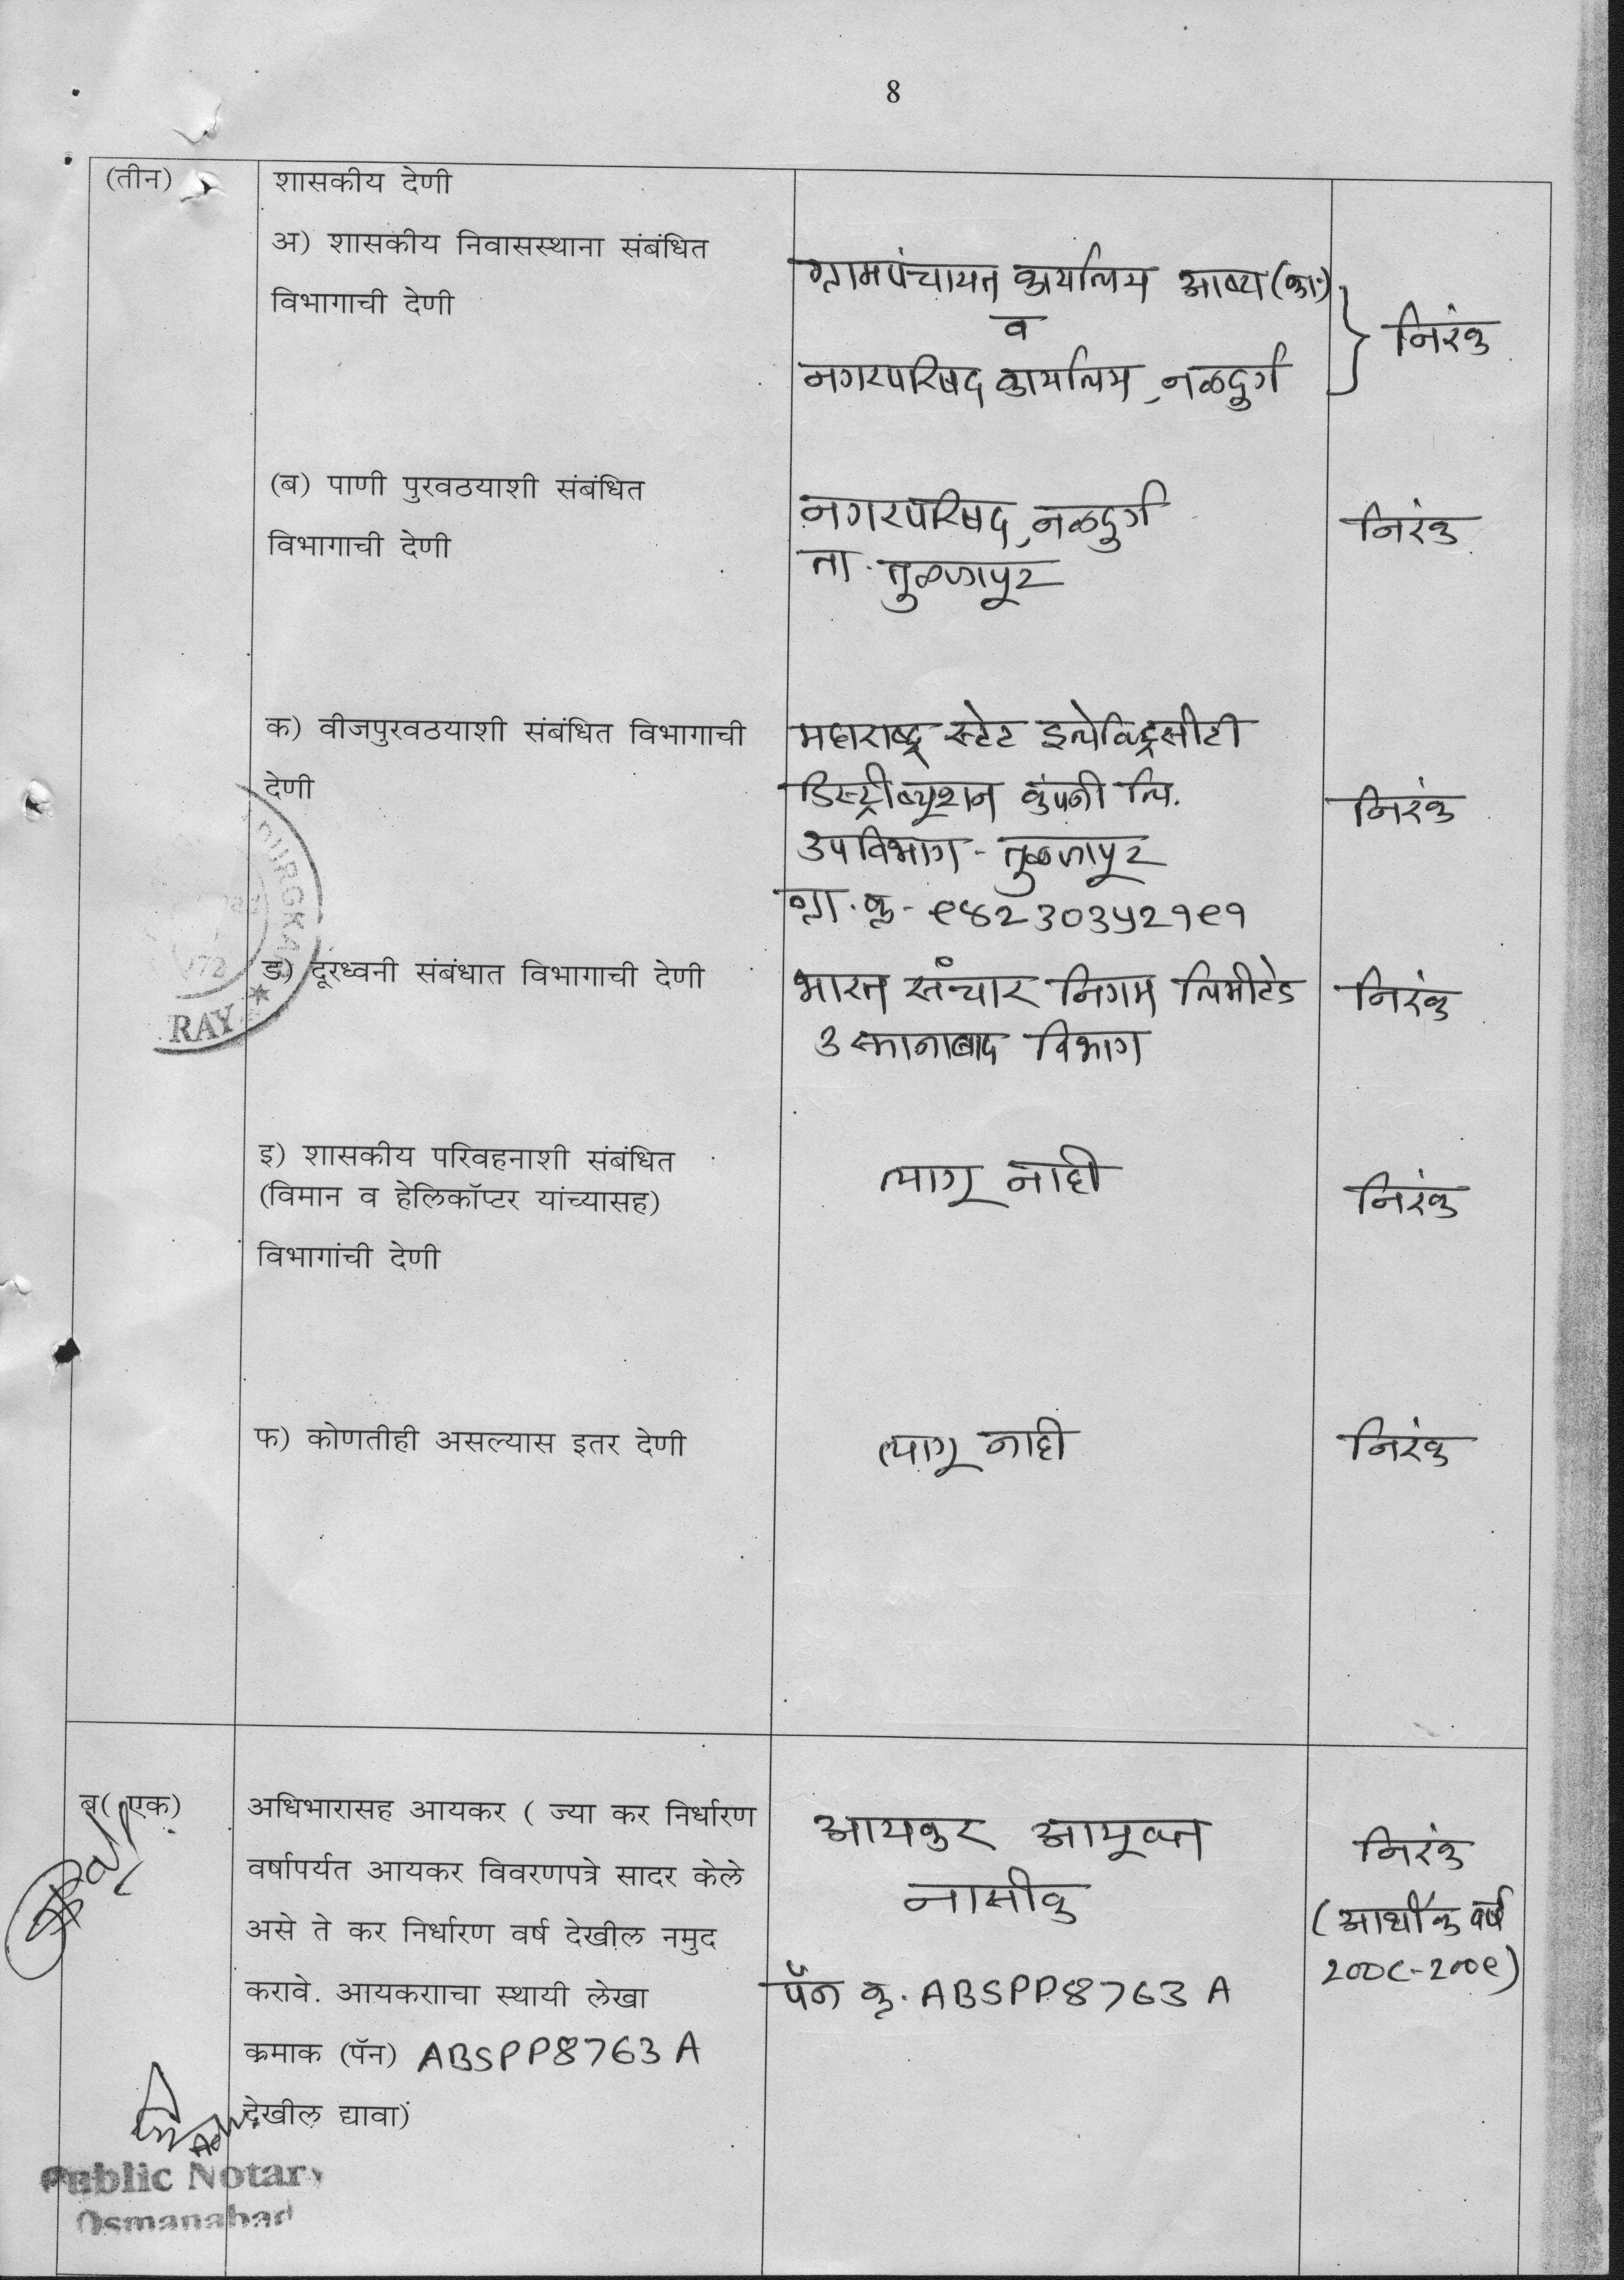 8
(तीन)
शासकीय देणी
अ) शासकीय निवासस्थाना संबंधित
विभागाची देणी
ग्रामपंचायत कार्यालय
व
नगरपरिषद कार्यालय, नळदुर्ग
निरंक
(ब) पाणी पुरवठयाशी संबंधित
विभागाची देणी
नगरपरिषद, नळदुर्ग
ता. तुळजापूर
निरंक
क) वीजपुरवठयाशी संबंधित विभागाची
देणी
महाराष्ट्र स्टेट इलेक्ट्रिसीटी
डिस्ट्रीब्यूशन कंपनी लि.
उपविभाग - तुळजापूर
ग्रा. क्र - ९४२३०३५२१९१
निरंक
ड) दूरध्वनी संबंधात विभागाची देणी
भारत संचार निगम लिमीटेड
उस्मानाबाद विभाग
निरंक
RAY ★
इ) शासकीय परिवहनाशी संबंधित
(विमान व हेलिकॉप्टर यांच्यासह)
विभागांची देणी
लागू नाही
निरंक
फ) कोणतीही असल्यास इतर देणी
लागू नाही
निरंक
ब( एक)
अधिभारासह आयकर ( ज्या कर निर्धारण
वर्षापर्यत आयकर विवरणपत्रे सादर केले
असे ते कर निर्धारण वर्ष देखील नमुद
करावे. आयकरााचा स्थायी लेखा
कमाक (पॅन) ABSPP8763A
देखील द्यावा)
आयकर आयूक्त
नासीक
पॅन क्र. ABSPP8763A
निरंक
(आर्थीक वर्ष
२००८-२००९)
Public Notary
Osmanabad